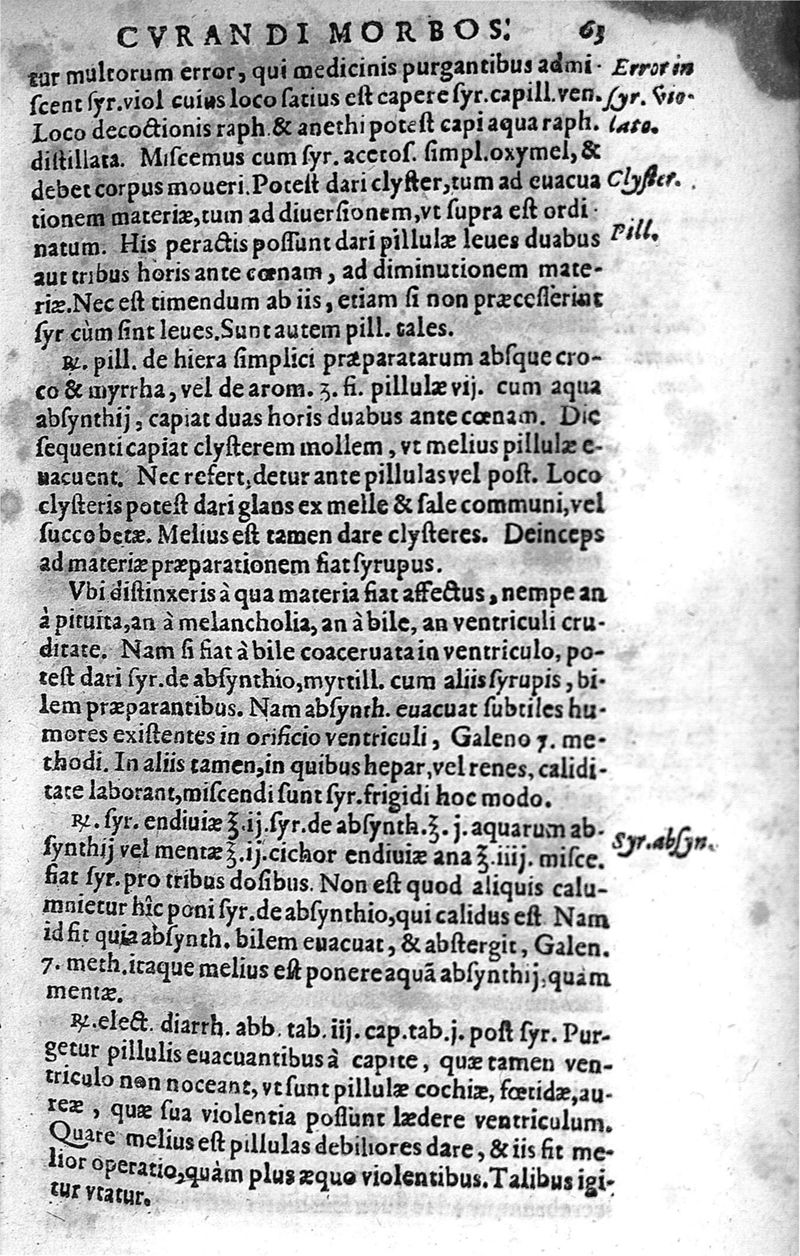 CVRANDI MORBOS. 63
tur multorum error, qui medicinis purgantibus admi- Error in
scent syr.viol cuius loco satius est capere syr.capill.ven. syr. Vio-
Loco decoctionis raph.& anethi potest capi aqua raph. lato.
distillata. Miscemus cum syr. acetos. simpl.oxymel, &
debet corpus moueri.Potest dari clyster,tum ad euacua Clyster.
tionem materiæ,tum ad diuersionem,vt supra est ordi-
natum. His peractis possunt dari pillulæ leues duabus Pill.
aut tribus horis ante cœnam, ad diminutionem mate-
riæ.Nec est timendum ab iis, etiam si non præcesserint
syr cùm sint leues.Sunt autem pill. tales.
℞. pill. de hiera simplici præparatarum absque cro-
co & myrrha, vel de arom. ʒ. ſi. pillulæ vij. cum aqua
absynthij, capiat duas horis duabus ante cœnam. Die
sequenti capiat clysterem mollem, vt melius pillulæ e-
uacuent. Nec refert,detur ante pillulas vel post. Loco
clysteris potest dari glans ex melle & sale communi,vel
succo betæ. Melius est tamen dare clysteres. Deinceps
ad materiæ præparationem fiat syrupus.
Vbi distinxeris à qua materia fiat affectus, nempe an
à pituita,an à melancholia, an à bile, an ventriculi cru-
ditate. Nam si fiat à bile coaceruata in ventriculo, po-
test dari syr.de absynthio,myrtill. cum aliis syrupis, bi-
lem præparantibus. Nam absynth. euacuat subtiles hu-
mores existentes in orificio ventriculi, Galeno 7. me-
thodi. In aliis tamen,in quibus hepar,vel renes, calidi-
tate laborant,miscendi sunt syr.frigidi hoc modo.
℞. syr. endiuiæ ℥.ij.syr.de absynth.℥. j. aquarum ab-
synthij vel mentæ ℥.ij.cichor endiuiæ ana ℥.iiij. misce. Syr.absyn.
fiat syr.pro tribus dosibus. Non est quod aliquis calu-
mnietur hîc poni syr.de absynthio,qui calidus est Nam
id fit quia absynth. bilem euacuat, & abstergit, Galen.
7. meth.itaque melius est ponere aquã absynthij,quàm
mentæ.
℞.elect. diarrh. abb. tab. iij. cap.tab.j. post syr. Pur-
getur pillulis euacuantibus à capite, quæ tamen ven-
triculo non noceant, vt sunt pillulæ cochiæ, fœtidæ,au-
reæ, quæ sua violentia possunt lædere ventriculum.
Quare melius est pillulas debiliores dare, & iis fit me-
lior operatio,quàm plus æquo violentibus.Talibus igi-
tur vtatur.